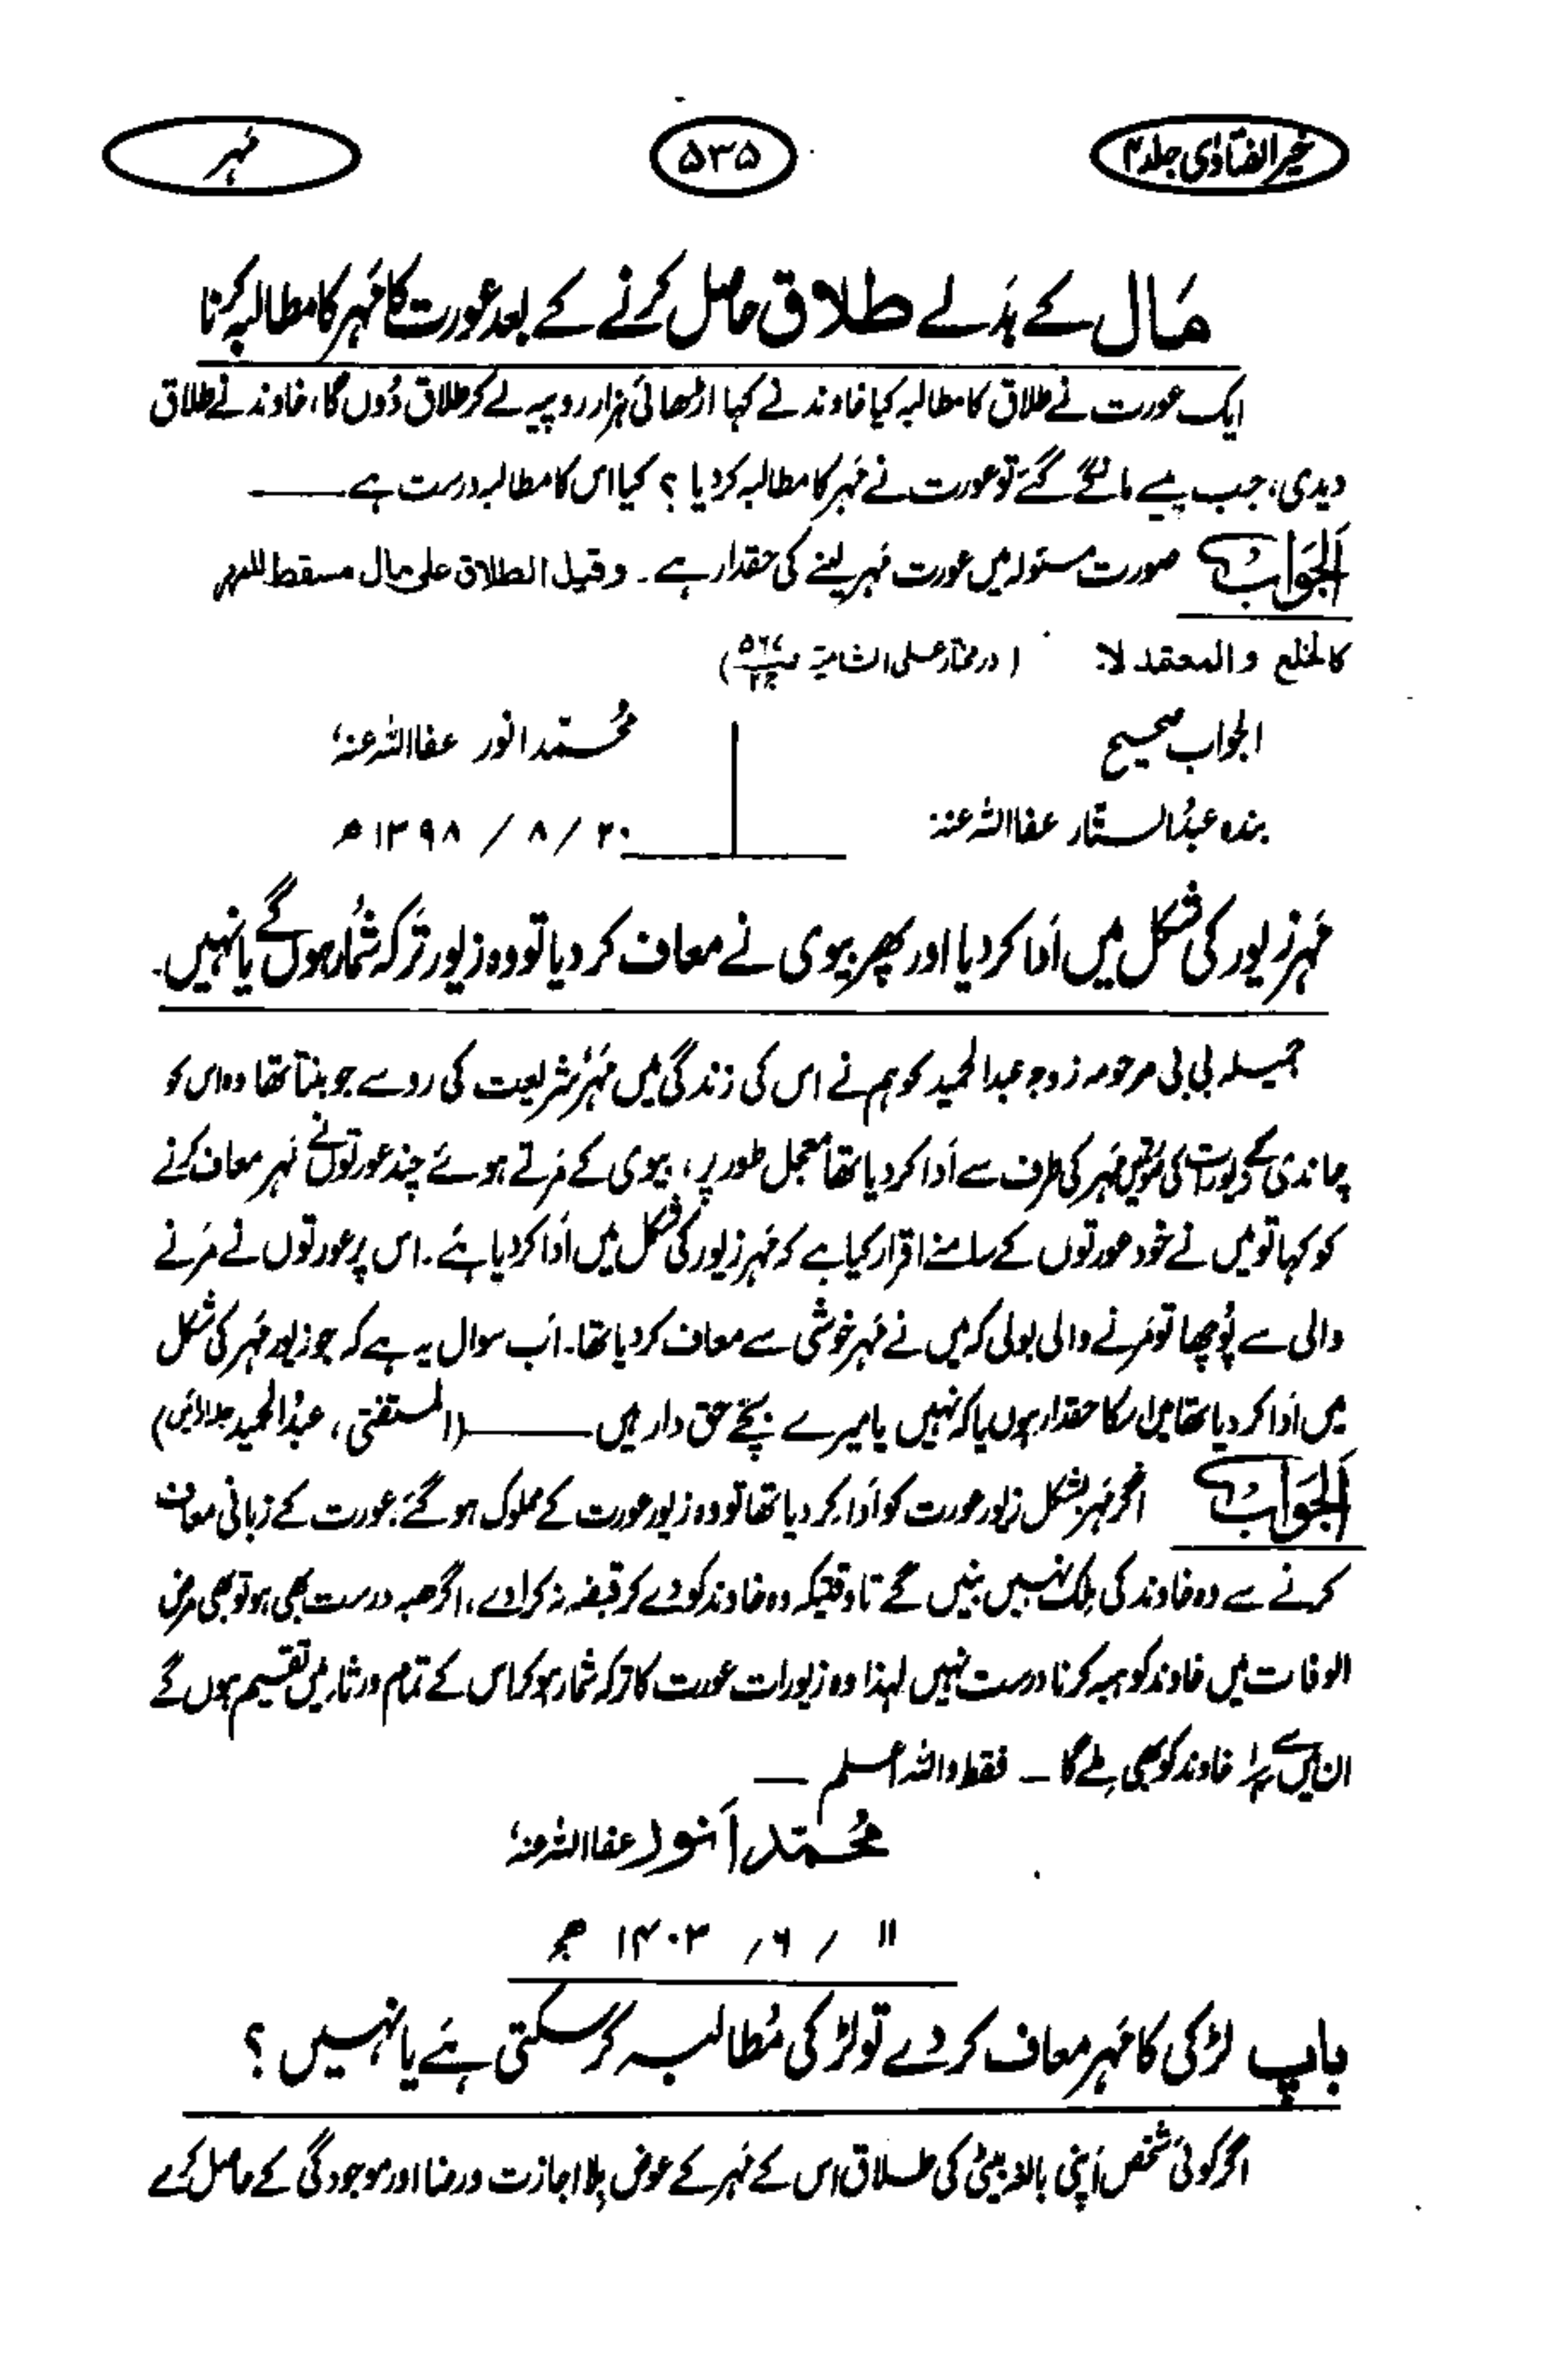 خیر الفتاوٰی جلد ۴
۵۳۵
مہر
مَال کے بدَلے طلاق حاصل کرنے کے بعد عورت کا مَہر کا مطالبہ کرنا
ایک عورت نے طلاق کا مطالبہ کیا خاوند نے کہا اڑھائی ہزار روپیہ لے کر طلاق دُوں گا، خاوند نے طلاق
دیدی، جب پیسے مانگے گئے تو عورت نے مَہر کا مطالبہ کر دیا ؟ کیا اس کا مطالبہ درست ہے ـــــ
اَلجَوَابُ صورت مسئولہ میں عورت مَہر لینے کی حقدار ہے ۔ وقیل الطلاق علی مال مسقط للمہر
کالخلع والمعتمد لا (در مختار علی الشامیۃ
الجواب صحیح
محمّد انور عفا اللہ عنہ،
بندہ عبدُالستّار عفا اللہ عنہ
۲۰ / ۸ / ۱۳۹۸ ھ
مَہر زیور کی شکل میں اَدا کر دیا اور پھر بیوی نے معاف کر دیا تو وہ زیور ترَکہ شمُار ہوں گے یا نہیں ۔
جمیلہ بی بی مرحومہ زوجہ عبدالحمید کو ہم نے اس کی زندگی میں مَہَر شریعت کی رو سے جو بنتا تھا وہ اس کو
چاندی کے زیورات کی صورت میں مَہر کی طرف سے اَدا کر دیا تھا معجل طور پر، بیوی کے مَرتے ہوئے چند عورتوں نے مَہر معاف کرنے
کو کہا تو میں نے خود عورتوں کے سامنے اقرار کیا ہے کہ مَہر زیور کی شکل میں اَدا کر دیا ہئے ۔ اس پر عورتوں نے مَرنے
والی سے پُوچھا تو مَرنے والی بولی کہ میں نے مَہر خوشی سے معاف کر دیا تھا ۔ اَب سوال یہ ہے کہ جو زیور مَہر کی شکل
میں اَدا کر دیا تھا میں اسکا حقدار ہوں یا کہ نہیں یا میرے بچّے حق دار ہیں ـــــ (المستفتی، عبدُالحمید
اَلجَوَابُ اگر مَہر بشکل زیور عورت کو اَدا کر دیا تھا تو وہ زیور عورت کے مملوک ہو گئے، عورت کے زبانی معاف
کرنے سے وہ خاوند کی مِلک نہیں بنیں گے تا وقتیکہ وہ خاوند کو دے کر قبضہ نہ کرا دے، اگر ھبہ درست بھی ہو تو بھی مرض
الوفات میں خاوند کو ہبہ کرنا درست نہیں لہٰذا وہ زیورات عورت کا ترکہ شمار ہو کر اس کے تمام ورثار میں تقسیم ہوں گے
ان میں سے خاوند کو بھی ملے گا ـ فقط واللہ اعلم ـ
محُمّد اَنور عفا اللہ عنہ،
۱۱ / ۶ / ۱۴۰۳ ھج
باپ لڑکی کا مَہر معاف کر دے تو لڑکی مُطالبہ کر سکتی ہَے یا نہیں ؟
اگر کوئی شخص اَپنی بالغہ بیٹی کی طلاق اس کے مَہر کے عوض بلا اجازت و رضا اور موجودگی کے حاصل کرے